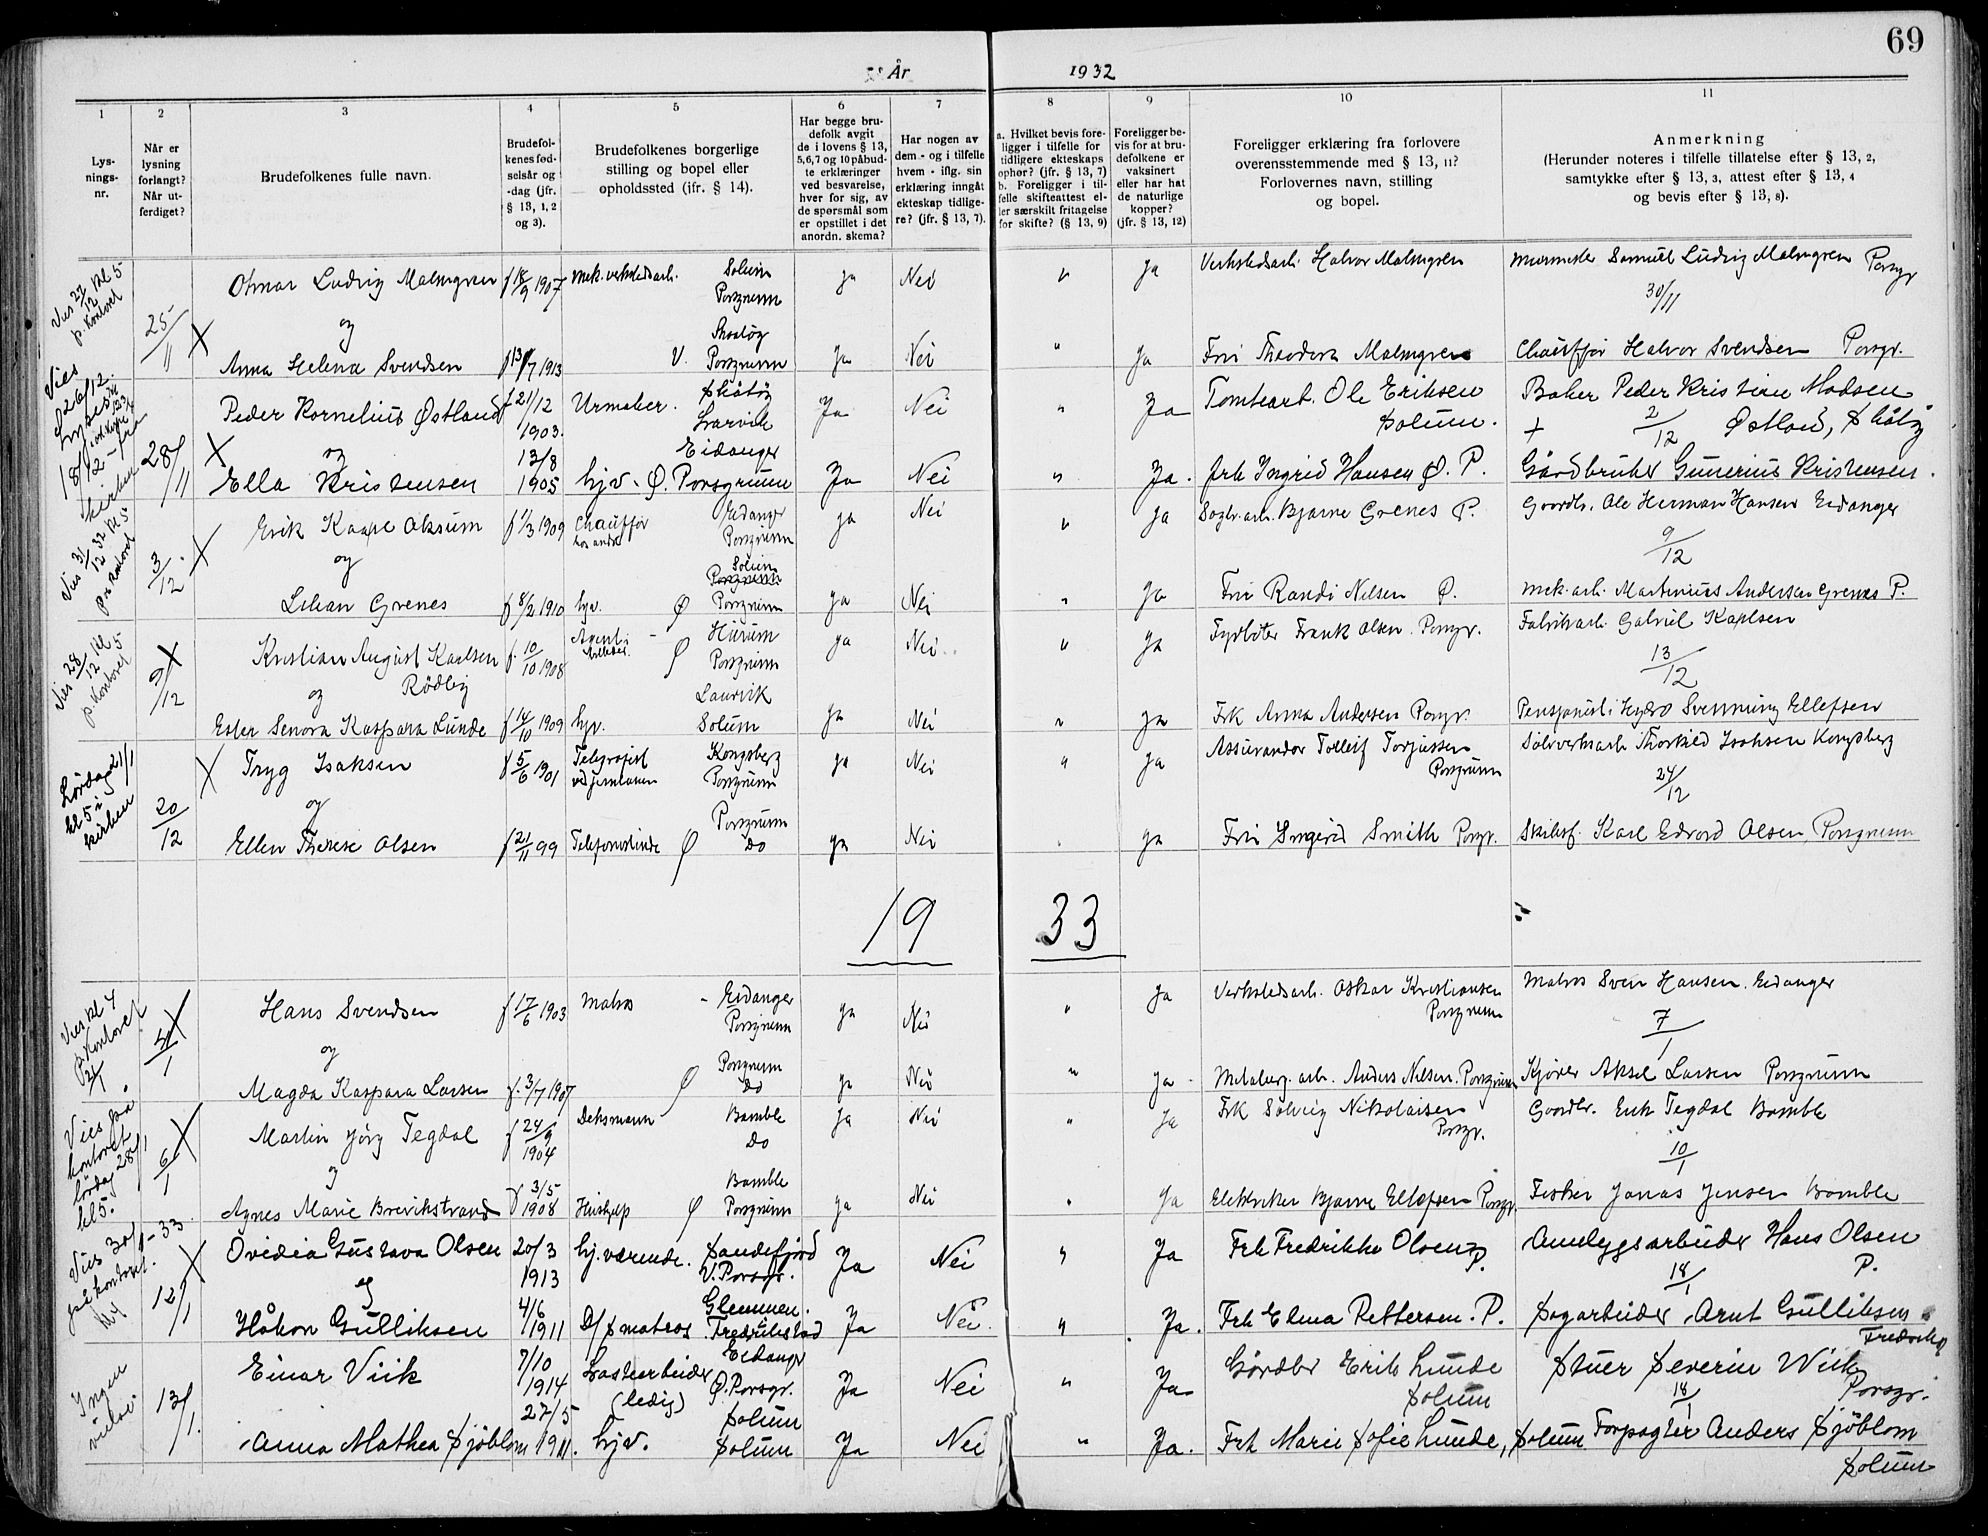 69
År 1932
1 2 3 4 5 6 7 8 9 10 11
Lys-
nings-
nr.
Når er
lysning
forlangt?
Når ut-
ferdiget?
Brudefolkenes fulle navn.
Brudefol-
kenes fød-
selsår og
-dag (jfr.
§ 13, 1, 2
og 3).
Brudefolkenes borgerlige
stilling og bopel eller
opholdssted (jfr. § 14).
Har begge bru-
defolk avgit
de i lovens § 13,
5,6,7 og 10 påbud-
te erklæringer
ved besvarelse,
hver for sig, av
de spørsmål som
er opstillet i det
anordn. skema?
Har nogen av
dem - og i tilfelle
hvem - iflg. sin
erklæring inngått
ekteskap tidlige-
re? (jfr. § 13, 7).
a. Hvilket bevis fore-
ligger i tilfelle for
tidligere ekteskaps
ophør? (jfr. § 13, 7)
b. Foreligger i til-
felle skifteattest el-
ler særskilt fritagelse
for skifte? (§ 13, 9)
Foreligger be-
vis for at bru-
defolkene er
vaksinert
eller har hat
de naturlige
kopper?
(jfr. § 13, 12)
Foreligger erklæring fra forlovere
overensstemmende med § 13, 11?
Forlovernes navn, stilling
og bopel.
Anmerkning
(Herunder noteres i tilfelle tillatelse efter § 13, 2,
samtykke efter § 13, 3, attest efter § 13, 4
og bevis efter § 13, 8).
Vies 27/12 kl 5
p. kontoret
25/11 X
Otmar Ludvig Malmgren f 18/9 1907 mek. verkstedsarb. Solum
Porsgrunn
ja Nei " ja Verkstedsarb. Halvor Malmgren
Murmester Samuel Ludvig Malmgren Porsgr
30/11
og
Anna Helena Svendsen f 13/7 1913 Skåtøy
V. Porsgrunn
ja Nei " ja Frü Theodora Malmgren Chauffør Halvor Svendsen Porsgr.
Vies
26/12.
Lyses
18/12 - fra
kirken
28/11 X
Peder Kornelius Østland f 21/12
1903.
Urmaker. Skåtøy
Larvik
Ja Nei " Ja Tomtearb. Ole Eriksen
Solum.
Baker Peder Kristian Madsen
+ 2/12 Østland, Skåtøy
og
Ella Kristensen 13/8
1905
hjv. Eidanger
Ø. Porsgrunn
Ja Nei " Ja. frk Ingrid Hansen Ø. P. Gårdbruker Gunerius Kristensen.
Vies 31/12 32 kl 5
p. kontoret
3/12. X
Erik Kaare Aksum f 1/3 1909 Chauffør
hos andre
Eidanger
Porsgrunn
ja Nei " ja Sagbr. arb. Bjarne Grenes P. Gaardb. Ole Herman Hansen Eidanger
9/12
og
Lilian Grenes f 8/2 1910 hjv. Solum
Ø Porsgrunn
ja Nei " ja Frü Randi Nilsen Ø. Mek. arb. Martinius Andersen Grenes P.
Vies 28/12 kl 5
p. kontoret
9/12 X
Kristian August Karlsen
Rødby
f. 10/10 1908 Hurum
Ø Porsgrunn
ja Nei " ja Fyrbøter Frank Olsen. Porsgr. Fabrikarb. Gabriel Karlsen
13/12
og
Ester Senora Kaspara Lunde f 14/10 1909 hjv. Laurvik
Solum
ja Nei " ja Frk Anna Andersen Porsgr. Pensjonist i Hydro Svenning Ellefsen
Lördag 21/1
kl 5 i
kirken
20/12 X
Tryg Isaksen f 5/6 1901 Telegrafist
ved jernbanen
Kongsberg
Porsgrunn
ja Nei " ja Assurandør Tolleif Torjussen
Porsgrunn
Sølvverksarb. Thorkild Isaksen Kongsberg
24/12
og
Ellen Therese Olsen f 21/11 99 Telefonistinde Ø Porsgrunn
do
ja Nei ja Frü Ingerid Smith Porsgr. Skibsf. Karl Edvard Olsen, Porsgrunn
19 33
Vies kl 4
p. kontoret
21/1
4/1 X
Hans Svendsen f 17/6 1903 Matros - Eidanger
Porsgrunn
ja Nei " ja Verkstedsarb. Oskar Kristiansen
Porsgrunn
Matros Sven Hansen. Eidanger
7/1
og
Magda Kaspara Larsen f. 3/7 1907 Ø Porsgrunn
do
ja Nei " ja. Metalurg. arb. Anders Nilsen. Porsgrunn Kjører Aksel Larsen Porsgrunn
Vies på
kontoret
lördag 28/1
kl 5.
6/1 X
Martin Jörg Tegdal f 24/9
1904
Deksmann Bamble
do
ja Nei " ja Frk Solveig Nikolaisen
Porsgr.
Gaardbr. Erik Tegdal Bamble
10/1
og
Agnes Marie Brevikstrand f 3/5
1908
Huishjelp Ø Bamble
Porsgrunn
ja Nei " ja Elektriker Bjarne Ellefsen Porsgr. Fisker Jonas Jensen Bamble
Vies 30/1 - 33
på kontoret.
kl 4
12/1 X
Ovidia Gustava Olsen 20/3
1913
hj. værende. Sandefjord
V. Porsgr.
Ja Nei " Ja Frk Fredrikke Olsen
P.
Anleggsarbeider Hans Olsen
P.
18/1
og
Håkon Gulliksen 4/6
1911
D/S matros Glemmen.
Fredrikstad
Ja Nei. " Ja. Frk Elma Pettersen. P. Sagarbeider Arnt Gulliksen
Fredrikst
Ingen
vielse.
13/1.
Einar Viik 7/10
1914
Lastearbeider
(ledig)
Eidanger
Ø. Porsgr.
Ja Nei " Ja Gårdbr Erik Lunde
Solum
Stuer Severin Wiik
Porsgr.
18/1
Anna Mathea Sjöblom 27/5
1911.
hjv. Solum
Solum
Ja Nei " Ja. Frk Marie Sofie Lunde, Solum Forpagter Anders Sjöblom
Solum